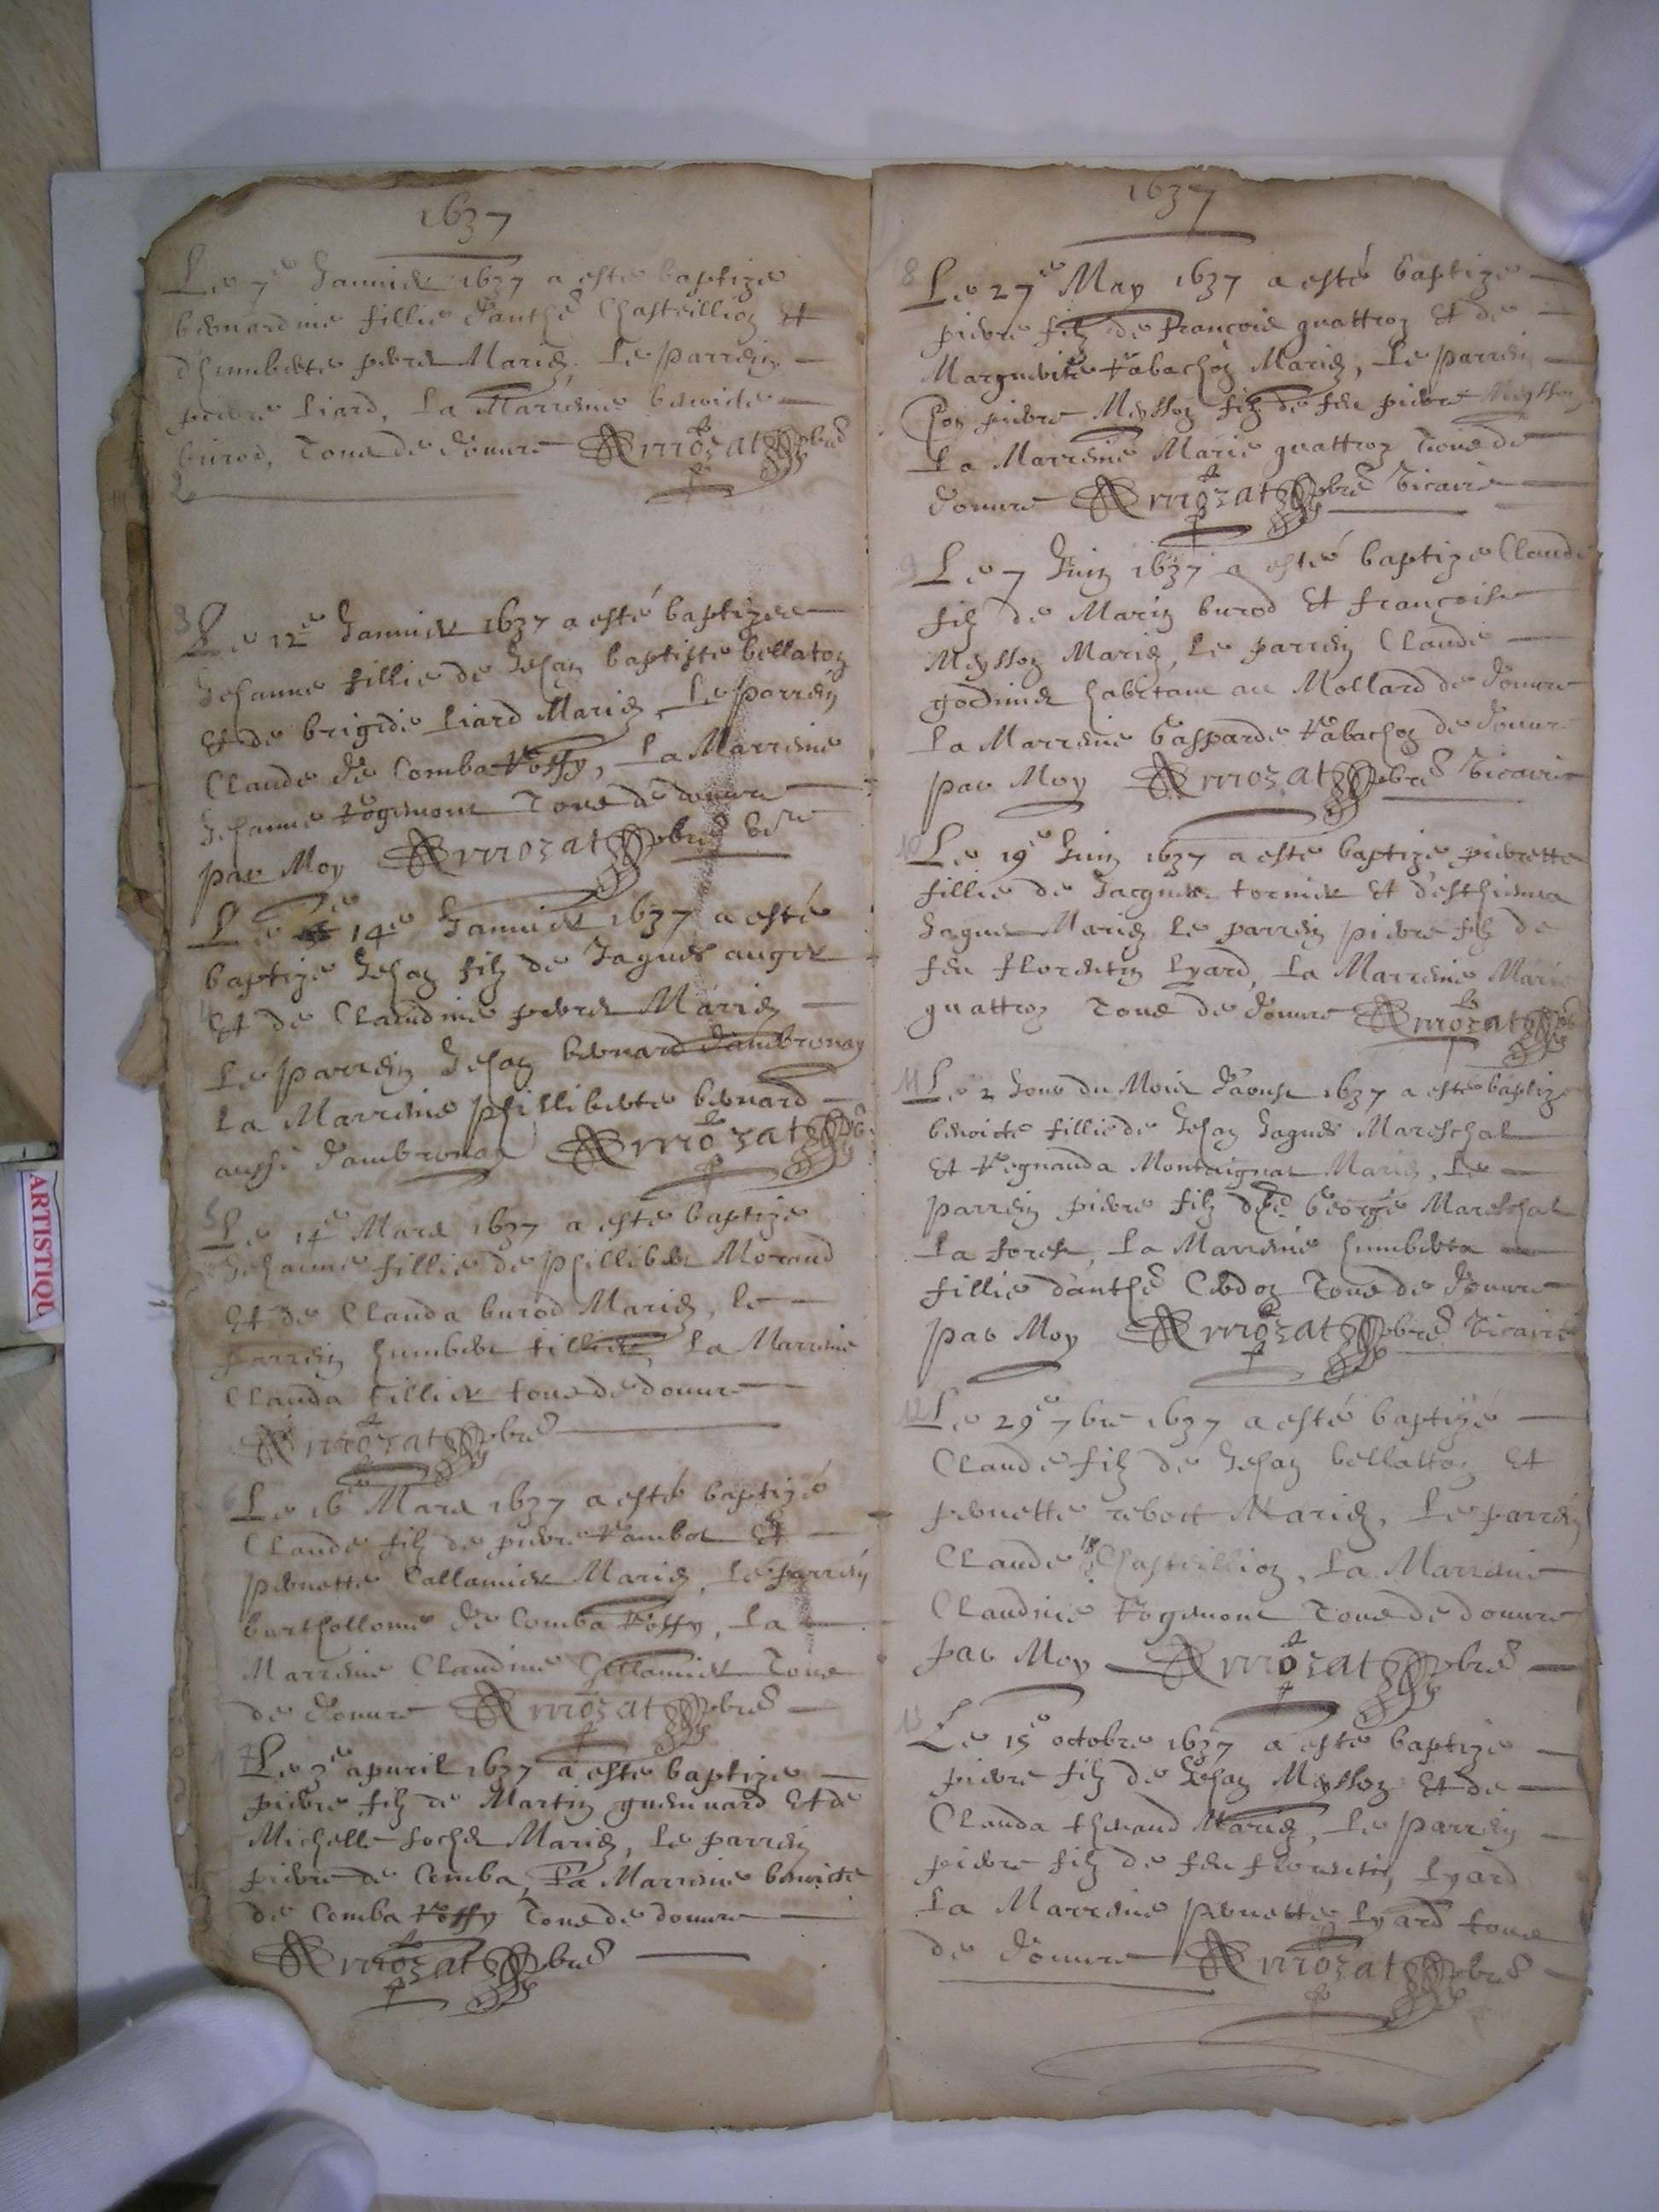 1637
Le 7e Januier 1637 a esté baptizé
bernardine fillie d'anthe Chastillion Et
d'humberte perret Mariez. Le parrein
pierre liard, la Marreine benoiste
burod, Tous de douure Ermozat pbre
3 Le 12e Januier 1637 a esté baptizee
Jehanne fillie de Jehan baptiste bellaton
Et de brigide liard Mariez, Le parrein
Claude de Comba Roffy, La Marreine
Jehanne Rogemont Tous de douure
par Moy Ermozat pbre vicre
Le 14e Januier 1637 a esté
baptizé Jehan filz de Jaques augier
4 Et de Claudine perret Mariez
Le parrein Jehan bernard d'ambronay
La Marreine philliberte bernard
aussi d'ambronay Ermozat pbre
5 Le 14e Mars 1637 a esté baptizé
Jehanne fillie de phillibert Morand
Et de Clauda burod Mariez, le
parrein humbert tillier, La Marreine
Clauda Tillier tous de douure
Ermozat pbre
Le 16e Mars 1637 a esté baptizé
Claude filz de pierre Rambot Et
pernette Callamier Mariez, Le parrein
barthollome de Comba Roffy, La
Marreine Claudine Callamier Tous
de douure Ermozat pbre
7 Le 3e apuril 1637 a esté baptizé
pierre filz de Martin guennard Et de
Michelle Mariez, Le parrein
pierre de Comba, La Marreine benoiste
de Comba Roffy Tous de douure
Ermozat pbre
1637
8 Le 27e May 1637 a esté baptizé
pierre filz de françois quattron Et de
Marguerite Rabachon Mariez, Le parrein
hon pierre Meysson filz de feu pierre Meysson
La Marreine Marie quattron Tous de
douure Ermozat pbre Vicaire
9 Le 7 Juin 1637 a esté baptizé Claude
filz de Marin burod Et françoise
Meysson Mariez, Le parrein Claude
godinet habitant au Mollard de douure
La Marreine Gasparde Rabachon de douure
par Moy Ermozat pbre Vicaire
10 Le 19e Juin 1637 a esté baptizé pierrette
fillie de Jacques tornier Et d'esthienna
Jaques Mariez Le parrein pierre filz de
feu florentin lyard, La Marreine Marie
quattron Tous de douure Ermozat pbre
11 Le 2 Jour du Mois d'Aoust 1637 a esté baptizé
benoiste fillie de Jehan Jaques Mareschal
Et Regnauda Montaignat Mariez, Le
parrein pierre filz de George Mareschal
La forest, La Marreine humberta
fillie d'anthe Cerdon Tous de douure
par Moy Ermozat pbre Vicaire
12 Le 29e 7bre 1637 a esté baptizé
Claude filz de Jehan bellatton Et
pernette rebott Mariez, Le parrein
Claude Chastillion, La Marreine
Claudine Rogemont Tous de douure
par Moy Ermozat pbre
13 Le 15e octobre 1637 a esté baptizé
pierre filz de Jehan Meysson Et de
Clauda thenaud Mariez, Le parrein
pierre filz de feu florentin, lyard
La Marreine pernette lyard tous
de douure Ermozat pbre